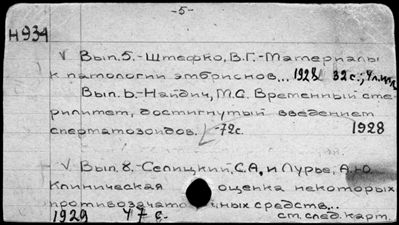 -5-
Н934
V Вып.5.-Штефко, В.Г.-Материалы
к патологии эмбрионов... 1928 32 с.;
Вып.6.-Найдич, М.С. Временный сте-
рилитет, достигнутый введением
сперматозоидов. -72с. 1928
V Вып.8.-Селицкий, С.А. и Лурье, А.Ю.
Клиническая оценка некоторых
противозачаточных средств...
1929 47 с. ст. след. карт.